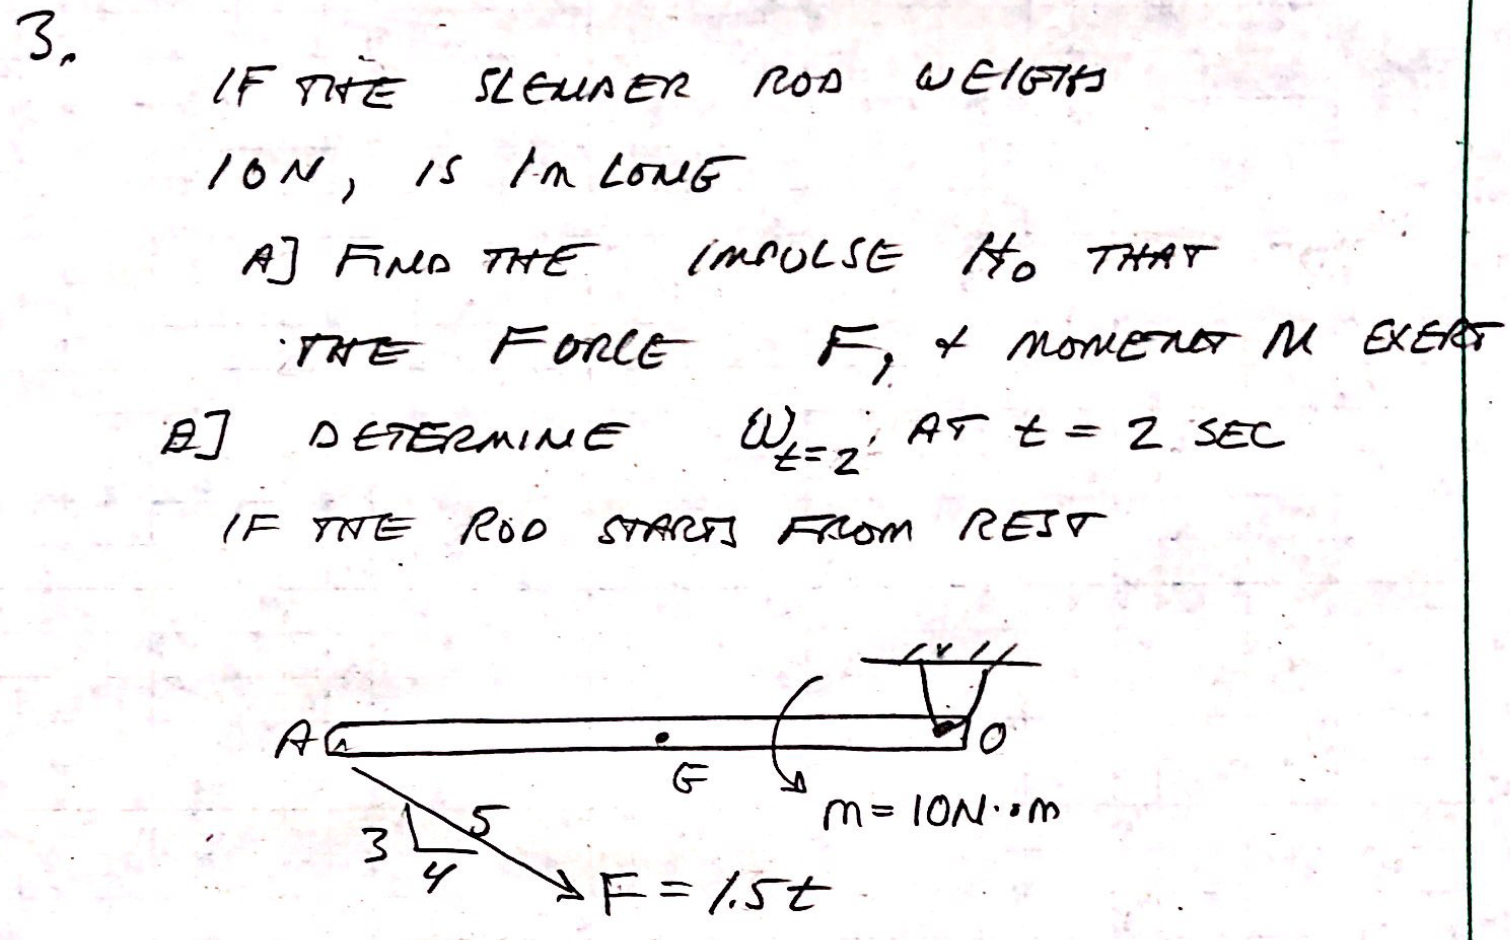 3.
IF THE SLENDER ROD WEIGHS
10N, IS 1m LONG
A] FIND THE IMPULSE H₀ THAT
THE FORCE F, & MOMENT M EXERT
B] DETERMINE ωₜ₌₂; AT t = 2 SEC
IF THE ROD STARTS FROM REST
A G O
m = 10N·m
3 4 5
F = 1.5t